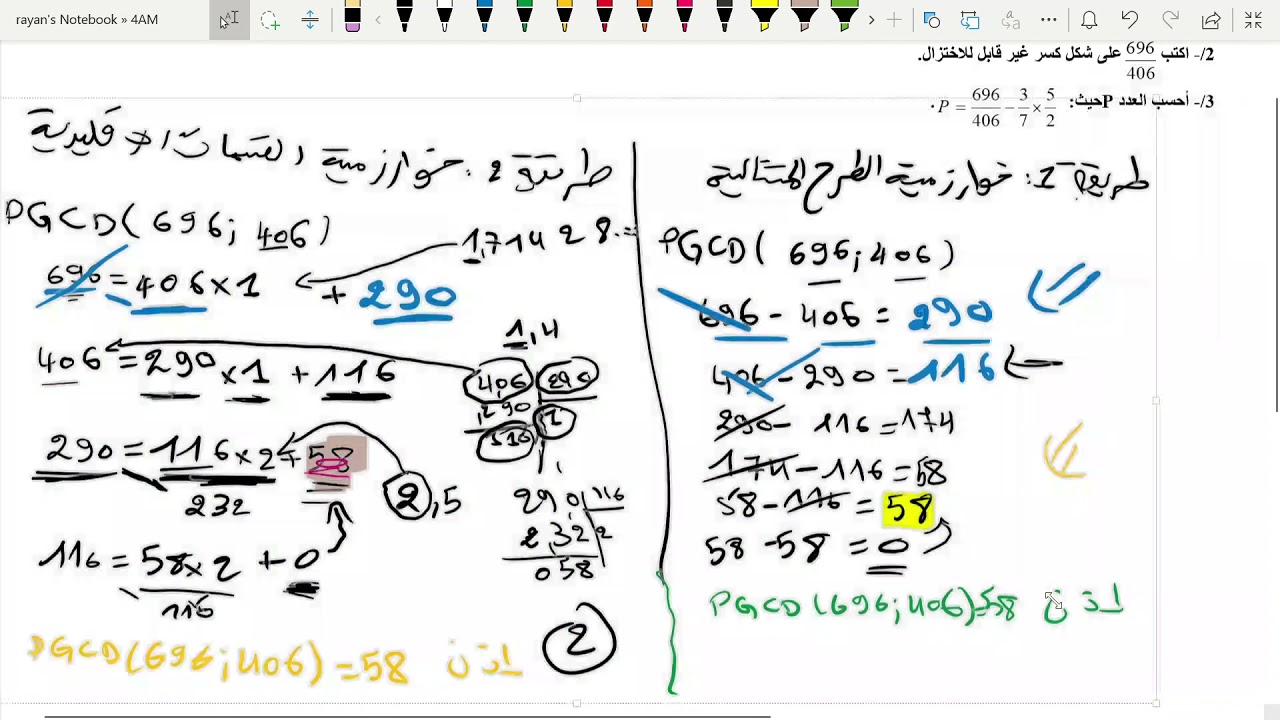 rayan's Notebook » 4AM
2/- اكتب 696/406 على شكل كسر غير قابل للاختزال.
3/- أحسب العدد P حيث: P = 696/406 − 3/7 × 5/2 .
طريقة 1: خوارزمية الطرح المتتالية
PGCD( 696; 406 )
696 - 406 = 290
406 - 290 = 116
290 - 116 = 174
174 - 116 = 58
58 - 116 = 58
58 - 58 = 0
إذن PGCD(696;406)=58
طريقة 2: خوارزمية القسمات الإقليدية
PGCD( 696; 406 )
1,714 28.=
696 = 406 × 1 + 290
1,4
406 = 290 × 1 + 116
406 290
290 1
116
290 = 116 × 2 + 58
232
2,5
290 116
232 2
058
116 = 58 × 2 + 0
116
إذن PGCD(696;406) = 58
2